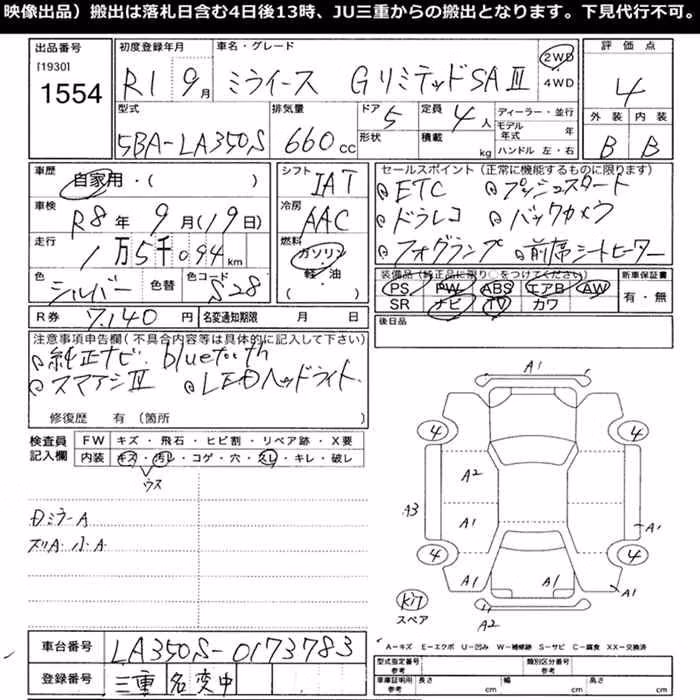 映像出品）搬出は落札日含む4日後13時、JU三重からの搬出となります。下見代行不可。
出品番号 初度登録年月 車名・グレード 2WD 評価点
[1930] R1 9月 ミライース GリミテッドSAⅢ 4WD 4
1554
型式 排気量 ドア 定員 ディーラー・並行 外装 内装
5BA-LA350S 660cc 5 4人 モデル年式 年 B B
形状 積載 kg ハンドル 左・右
車歴 自家用・( ) シフト IAT セールスポイント（正常に機能するものに限ります）
車検 R8年 9月(19日) 冷房 AAC ETC プッシュスタート
ドラレコ バックカメラ
走行 1万5千094km 燃料 ガソリン 軽・油 フォグランプ 前席シートヒーター
色 シルバー 色替 色コード S28 ・( )
装備品（純正品に限り○をつけてください） 新車保証書
PS PW ABS エアB AW 有・無
SR ナビ TV カワ
R券 7,140円 名変通知期限 月 日 後日品
注意事項申告欄(不具合内容等は具体的に記入して下さい)
純正ナビ. bluetooth
スマアシⅢ LEDヘッドライト
修復歴 有（箇所
検査員記入欄 FW キズ・飛石・ヒビ割・リペア跡・X要
内装 キズ・汚レ・コゲ・穴・スレ・キレ・破レ
ウス
ミラーA
小A
A1
4 4
A2
A3 A1 A1
4 4
A1 A1 A1
スペア A2
A-キズ E-エクボ U-凹み W-補修跡 S-サビ C-腐食 XX-交換済
車台番号 LA350S-0173783
登録番号 三重 名変中
型式指定番号 類別区分番号
車庫証明用 長さ cm 幅 cm 高さ cm